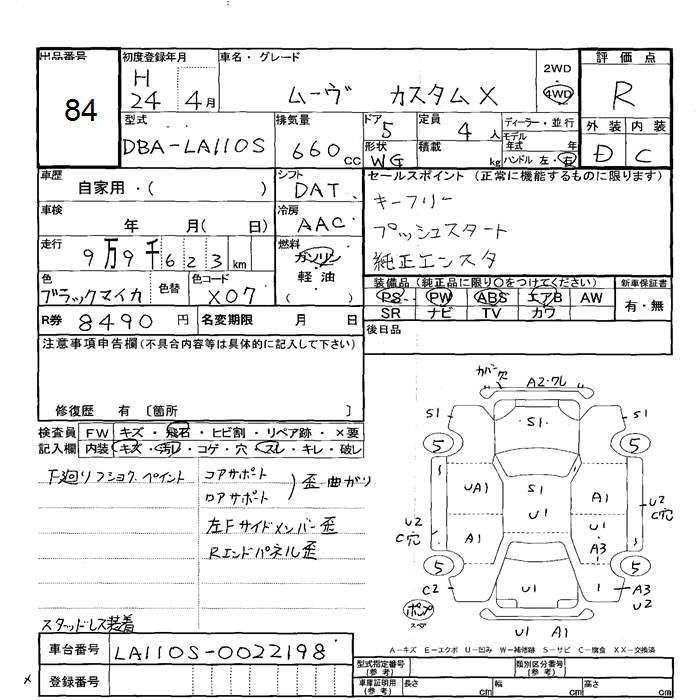 出品番号
84
初度登録年月
H
24 4月
車名・グレード
ムーヴ カスタムX
2WD
4WD
評価点
R
外装 内装
D C
型式
DBA-LA110S
排気量
660cc
ドア
5
定員
4人
形状
WG
積載
kg
ディーラー・並行
モデル
年式 年
ハンドル 左・右
車歴
自家用・( )
シフト
DAT
セールスポイント (正常に機能するものに限ります)
キーフリー
プッシュスタート
純正エンスタ
車検
年 月( 日)
冷房
AAC
走行
9万9千623km
燃料
ガソリン
軽油
( )
色
ブラックマイカ
色替
色コード
X07
装備品 (純正品に限り○をつけてください)
PS PW ABS エアB AW
SR ナビ TV カワ
新車保証書
有・無
R券 8490円 名変期限 月 日
後日品
注意事項申告欄(不具合内容等は具体的に記入して下さい)
修復歴 有 〔箇所 〕
検査員 FW キズ・飛石・ヒビ割・リペア跡・×要
記入欄 内装 キズ・汚レ・コゲ・穴・スレ・キレ・破レ
下廻りフショク・ペイント
コアサポート
ロアサポート
歪 曲がり
左Fサイドメンバー歪
Rエンドパネル歪
スタッドレス装着
カバー欠
A2・ワレ
S1 S1 S1
5 5
UA1 S1 A1
U1 U1
A1 A3
U2 C穴
U2 C穴
5 5
C2 U1 1 A3
U2
ポンプ
スペア
U1 A1
A-キズ E-エクボ U-凹み W-補修跡 S-サビ C-腐食 XX-交換済
車台番号 LA110S-0022198
登録番号
型式指定番号(参考)
類別区分番号(参考)
車庫証明用(参考) 長さ cm 幅 cm 高さ cm
x